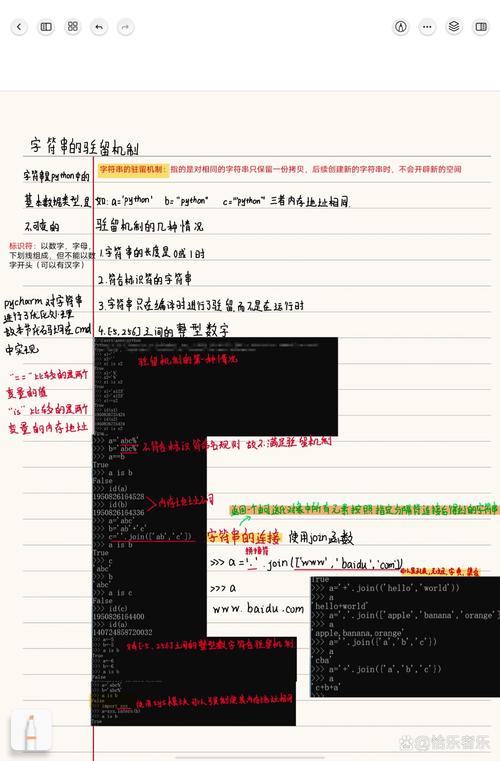 字符串的驻留机制
字符串的驻留机制：指的是对相同的字符串只保留一份拷贝，后续创建新的字符串时，不会开辟新的空间
字符串是python中的
基本数据类型,是
不可变的
如: a='python' b="python" c='''python''' 三者内存地址相同.
驻留机制的几种情况
标识符：以数字，字母，
下划线组成，但不能以数
字开头（可以有汉字）
1.字符串的长度是0或1时
2.符合标识符的字符串
3.字符串只在编译时进行了驻留,而不是在运行时
4.[-5,256]之间的整型数字
pycharm对字符串
进行了优化处理
故本节代码均在cmd
中实现
"=="比较的是两个
变量的值
"is"比较的是两个
变量的内存地址
驻留机制的第一种情况
>>> a='abc%'
>>> b='abc%'
>>> a==b
True
不符合标识符命名规则 故不满足驻留机制
>>> a is b
False
>>> id(a)
1950826164528
>>> id(b)
1950826164336
内存地址不同
>>> a='abc'
>>> b='ab'+'c'
>>> c=''.join(['ab','c'])
>>> a is b
True
>>> c
'abc'
>>> b
'abc'
>>> a is c
False
>>> id(c)
1950826164400
>>> id(a)
140724858720032
>>> a=-5
>>> b=-5
>>> a is b
True
>>> a=-6
>>> b=-6
>>> a is b
False
对[-5,256]之间的整型数字符合驻留机制
>>> a='abc%'
>>> b='abc%'
>>> a is b
False
>>> import sys
>>> a=sys.intern(b)
>>> a is b
True
使用sys模块可以强制使其内存地址相同
字符串的连接 使用join函数
>>> a='.'.join(['www','baidu','com'])
>>> a
www.baidu.com
True
>>> a='+'.join(('hello','world'))
>>> a
'hello+world'
>>> a=','.join(['apple','banana','orange'])
>>> a
'apple,banana,orange'
>>> a
'cba'
>>> a
'c+b+a'
>>>
哈乐者乐